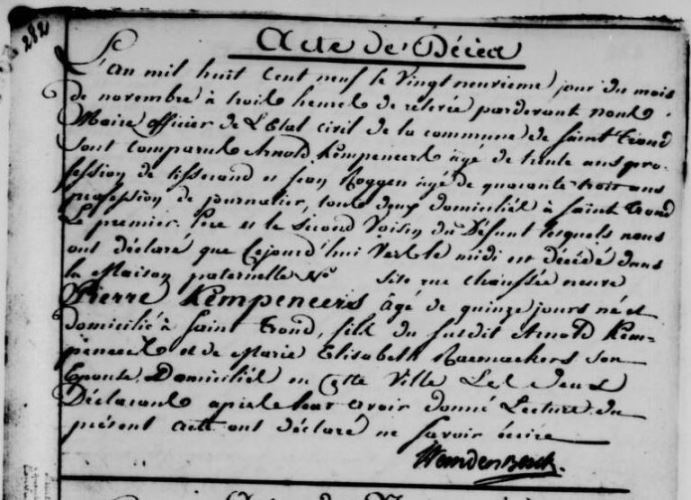 282
Acte de Décès
L'an mil huit cent neuf le vingt neuvieme jour du mois
de novembre à trois heures de relevée pardevant nous
Maire officier de l'Etat civil de la commune de Saint Trond
sont comparus Arnold Kempeneers âgé de trente ans pro-
fession de tisserand et Jean Roggen âgé de quarante trois ans
profession de journalier, tous deux domiciliés à Saint Trond
le premier Pere et le second Voisin du Défunt lesquels nous
ont déclaré que Cejourd'hui vers le midi est décédé dans
la Maison paternelle No sise rue chaussée neuve
Pierre Kempeneers âgé de quinze jours né et
domicilié à Saint Trond, fils du susdit Arnold Kem-
peneers et de Marie Elisabeth Raemaekers son
Epouse Domiciliés en Cette Ville Les Deux
Déclarans après leur avoir donné Lecture du
présent acte ont déclaré ne savoir écrire